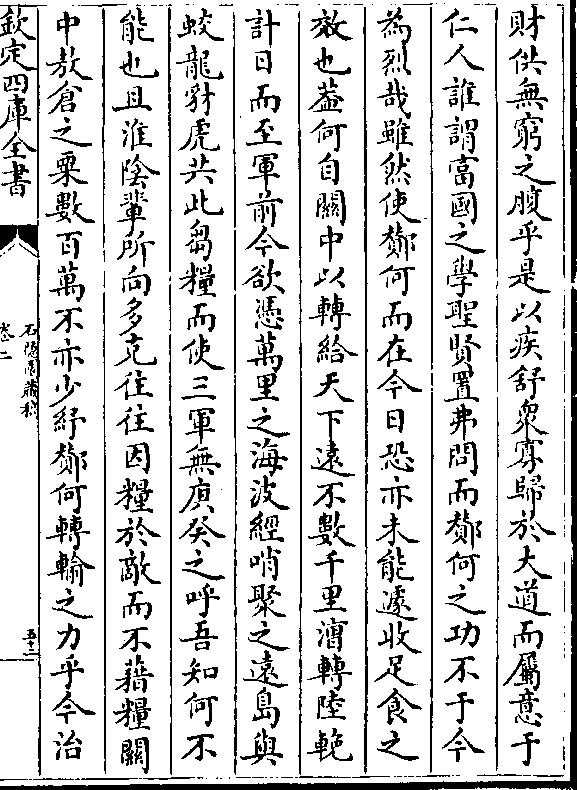 財供無窮之腹乎是以疾舒衆寡歸於大道而屬意于
仁人誰謂富國之學聖賢置弗問而酇何之功不于今
為烈哉雖然使酇何而在今日恐亦未能遽收足食之
效也葢何自關中以轉給天下遠不數千里漕轉陸輓
計日而至軍前今欲憑萬里之海波經哨聚之遠島與
蛟龍豺虎共此芻糧而使三軍無庚癸之呼吾知何不
能也且淮陰輩所向多克往往因糧於敵而不藉糧關
中敖倉之粟數百萬不亦少紓酇何轉輸之力乎今治
欽定四庫全書
石隱園藏稿
卷二
五十二